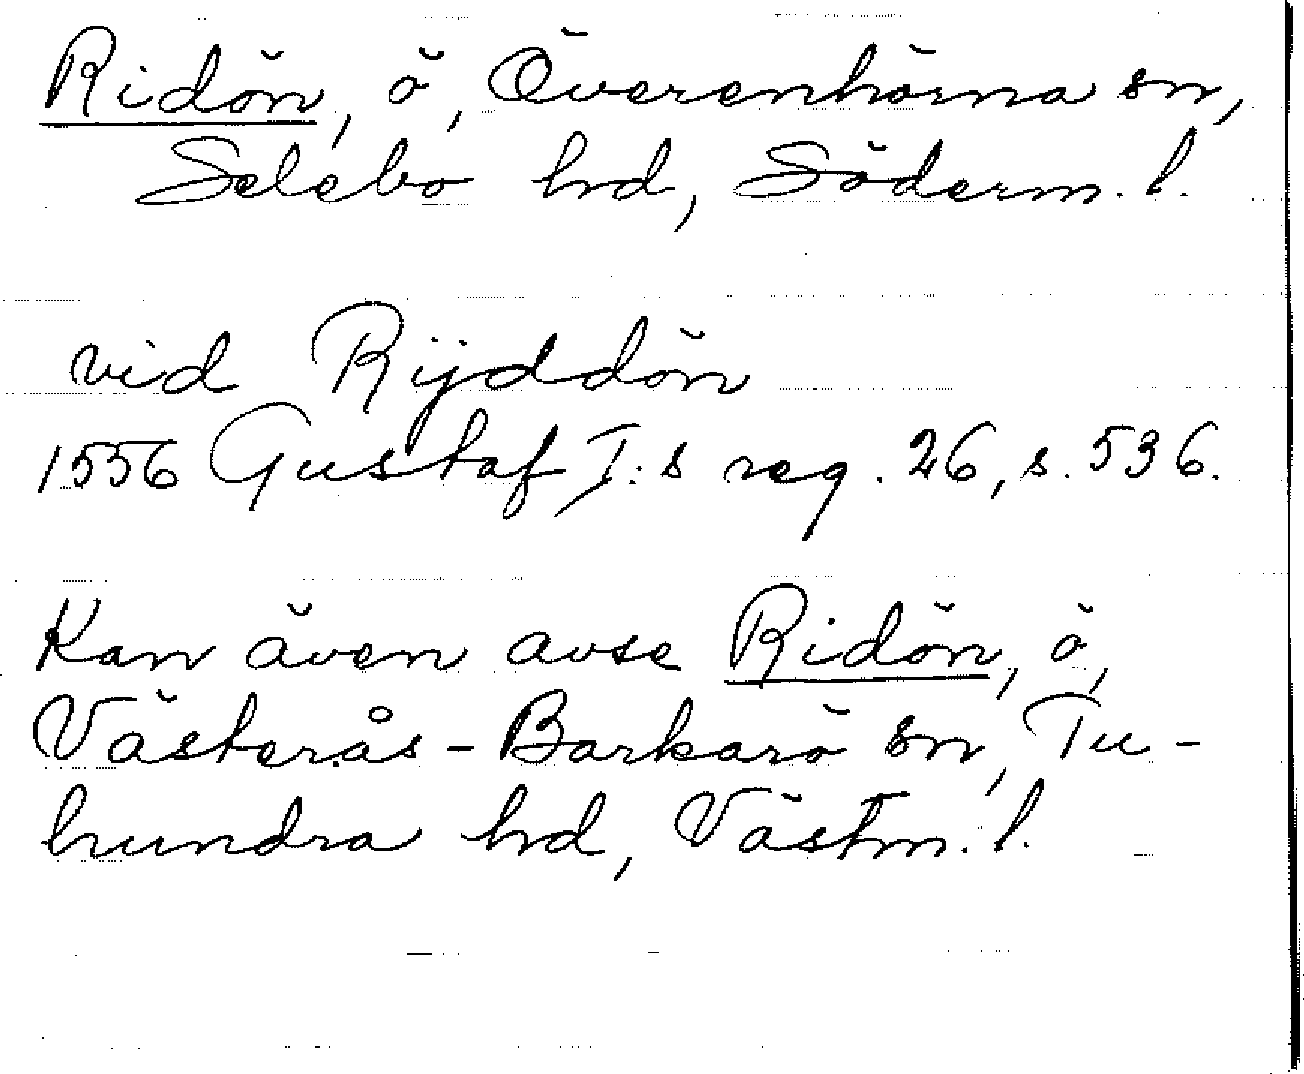 Ridön, ö, Överenhörna sn,
Selebo hd, Söderm. l.
vid Rÿddön
1556 Gustaf I:s reg. 26, s. 536.
Kan även avse Ridön, ö,
Västerås-Barkarö sn, Tu-
hundra hd, Västm. l.